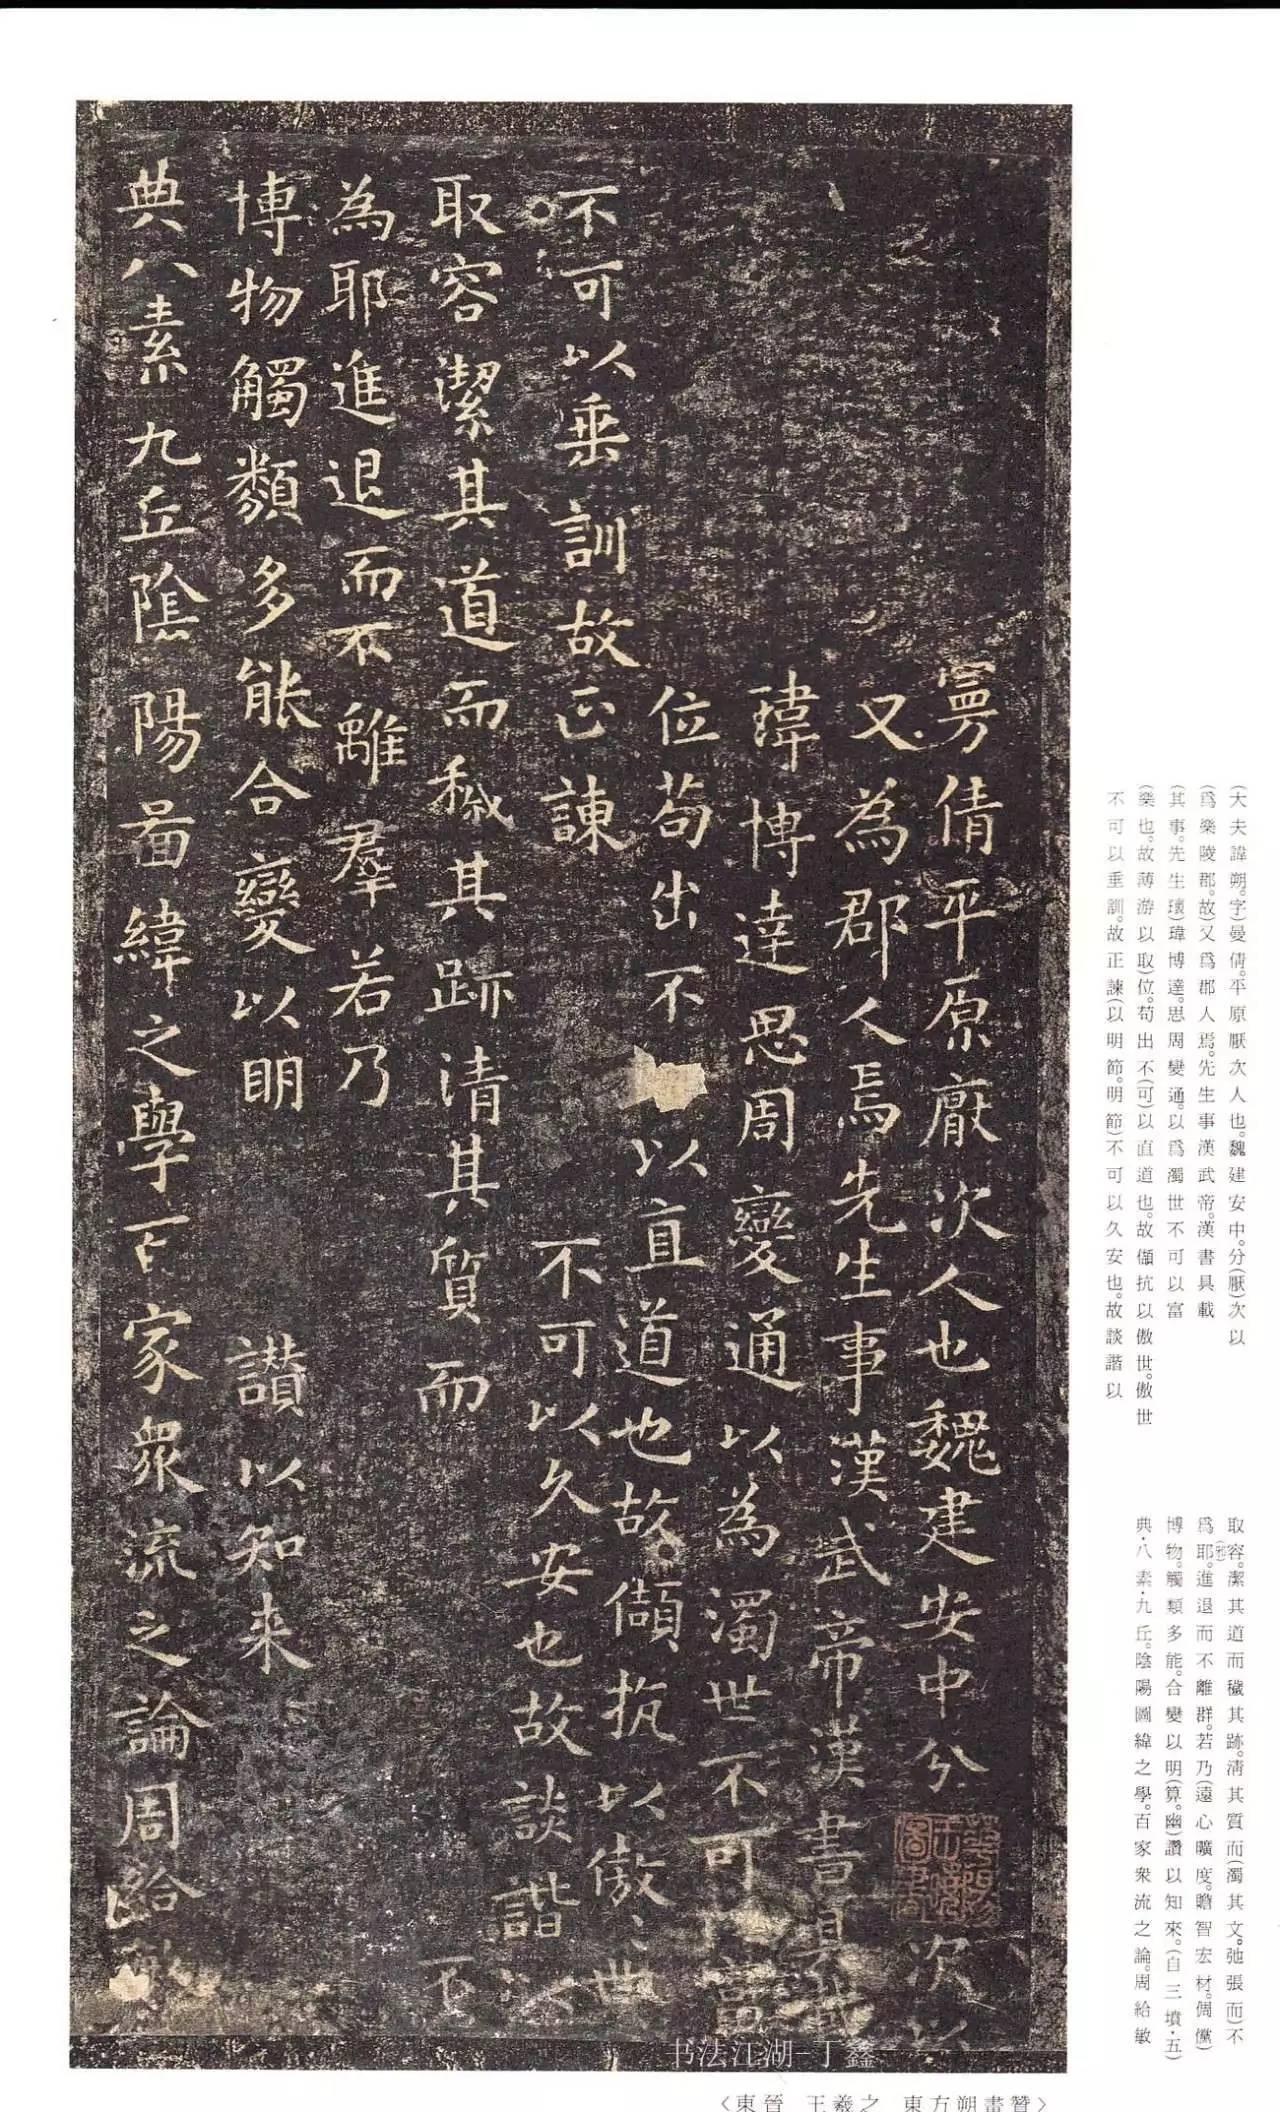 曼倩平原厭次人也魏建安中分次以
又為郡人焉先生事漢武帝漢書具載
瑋博達思周變通以為濁世不可富
位苟出不以直道也故頡抗以傲〻世
不可以垂訓故正諫不可以久安也故談諧以
取容潔其道而穢其跡清其質而不
為耶進退而不離羣若乃
博物觸類多能合變以明讃以知来
典八素九丘陰陽啚緯之學百家衆流之論周給敏
(大夫諱朔。字)曼倩。平原厭次人也。魏建安中。分(厭)次以
(爲樂陵郡。故)又爲郡人焉。先生事漢武帝。漢書具載
(其事。先生瓌)瑋博達。思周變通。以爲濁世不可以富
(樂也。故薄游以取)位。苟出不(可)以直道也。故頡抗以傲世。傲世
不可以垂訓。故正諫(以明節。明節)不可以久安也。故談諧以
取容。潔其道而穢其跡。清其質而(濁其文。弛張而)不
爲耶(邪)。進退而不離群。若乃(遠心曠度。瞻智宏材。倜儻)
博物。觸類多能。合變以明(算。幽)讚以知來。(自三墳·五)
典·八素·九丘。陰陽圖緯之學。百家衆流之論。周給敏
书法江湖-丁鑫
〈東晉 王羲之 東方朔畫贊〉